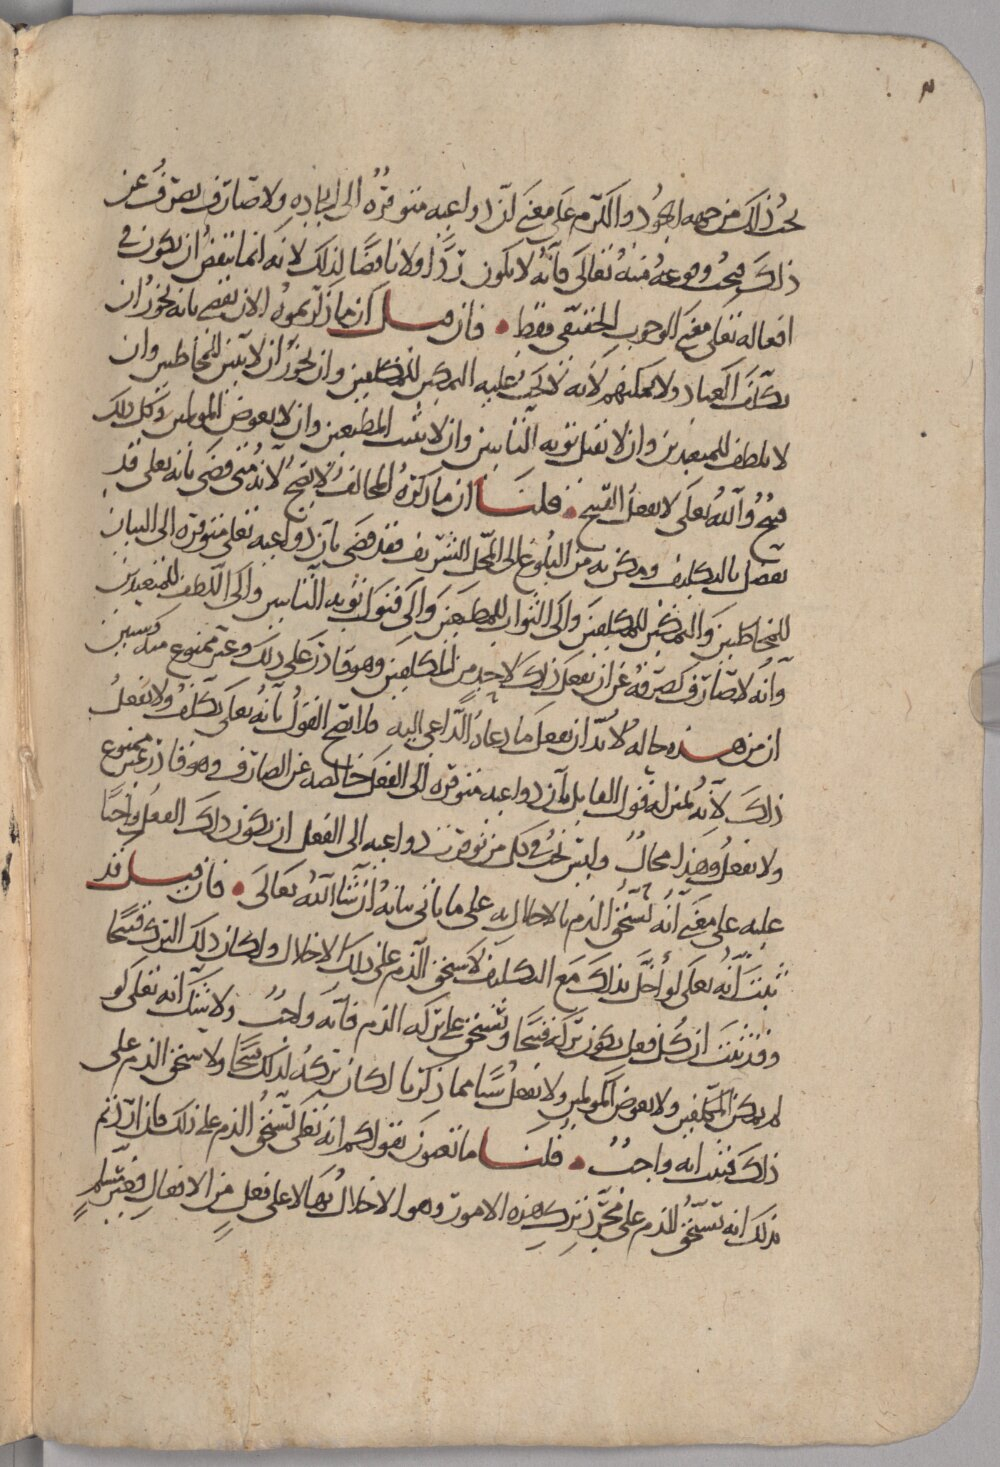 ٣
يجب ذلك من جهة الجود والكرم على معنى ان دواعيه متوفرة الى ايجاده ولا صارف يصرف عن
ذلك فيجب وقوعه منه تعالى فانه لا يكون ردًا ولا ناقضًا لذلك لانه انما ينقض ان يكون في
افعاله تعالى معنى الوجوب الحقيقي فقط • فان قيل ان ما ذكرتموه الان يقضي بانه يجوز ان
يكلف العباد ولا يمكنهم لانه لا يجب عليه التمكين للمكلفين وان يجوز ان لا يبين للمخاطبين وان
لا يلطف للمتعبدين وان لا يقبل توبة التائبين وان لا يثيب المطيعين وان لا يعوض المولمين وكل ذلك
قبيح والله تعالى لا يفعل القبيح • قلنا ان ما ذكره المخالف لا يصح لانه متى قضى بانه تعلى قد
تفضل بالتكليف ومكن به من البلوغ الى المحل الشريف فقد قضى بان دواعيه تعلى متوفرة الى البيان
للمخاطبين والتمكين للمكلفين والى الثواب للمطيعين والى قبول توبة التائبين والى اللطف للمتعبدين
وانه لا صارف يصرفه عن ان يفعل ذلك لاحد من المكلفين وهو قادر على ذلك وغير ممنوع منه وسنبين
ان من هذه حاله لا بد ان يفعل ما دعاه الداعي اليه فلا يصح القول بانه تعلى يكلف ولا يفعل
ذلك لانه بمنزلة قول القايل بان دواعيه متوفرة الى الفعل خالصة عن الصارف وهو قادر غير ممنوع
ولا يفعل وهذا محال وليس يجب في كل من توفرت دواعيه الى الفعل ان يكون ذلك الفعل واجبًا
عليه على معنى انه يستحق الذم بالاخلال به على ما ياتي بيانه ان شا الله تعالى • فان قيل قد
ثبت انه تعلى لو اخل بذلك مع التكليف لاستحق الذم على ذلك الاخلال ولكان ذلك الترك قبيحًا
وقد ثبت ان كل فعل يكون تركه قبيحًا ويستحق على تركه الذم فانه واجب ولا شك انه تعلى لو
لم يمكن المكلفين ولا يعوض المولمين ولا يفعل شيًا مما ذكرنا لكان تركه لذلك قبيحًا ولاستحق الذم على
ذلك فثبت انه واجب • قلنا ما تعنون بقولكم انه تعلى يستحق الذم على ذلك فان اردتم
بذلك انه يستحق للذم على مجرد ترك هذه الامور وهو الاخلال بها لا على فعل من الافعال فغير مسلم